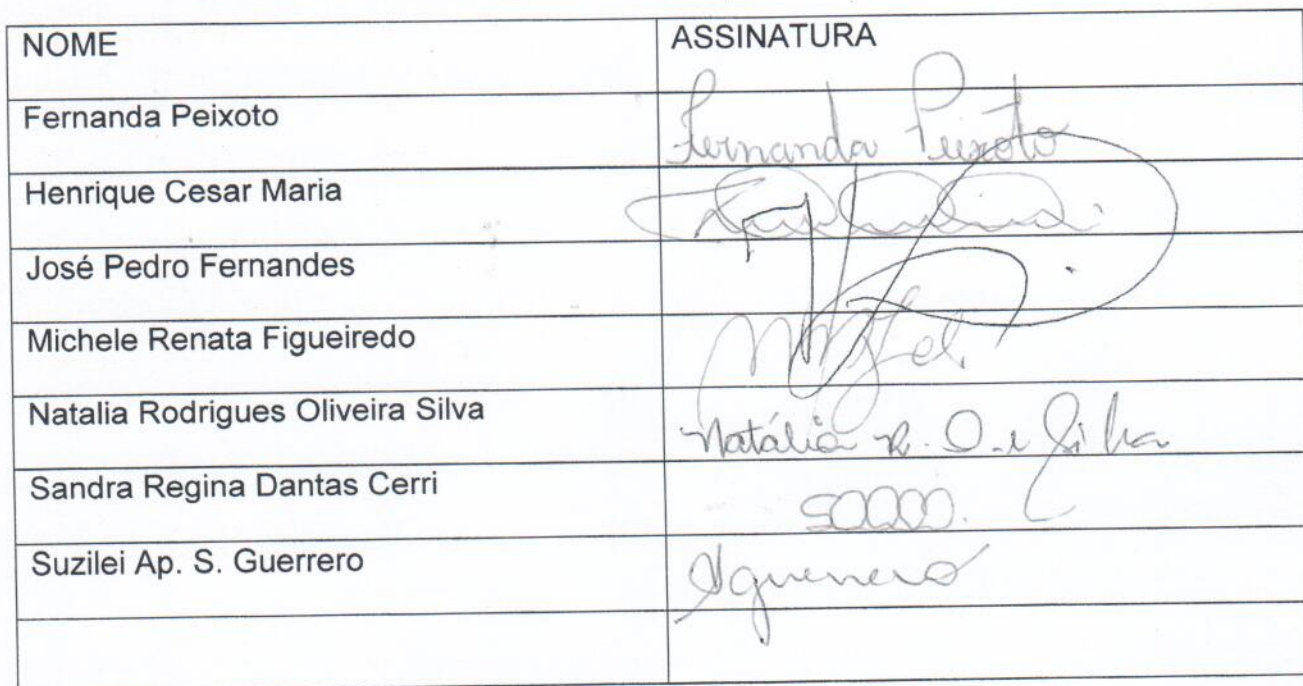 NOME ASSINATURA
Fernanda Peixoto Fernanda Peixoto
Henrique Cesar Maria
José Pedro Fernandes
Michele Renata Figueiredo
Natalia Rodrigues Oliveira Silva Natália R. O. e Silva
Sandra Regina Dantas Cerri
Suzilei Ap. S. Guerrero Sguerrero